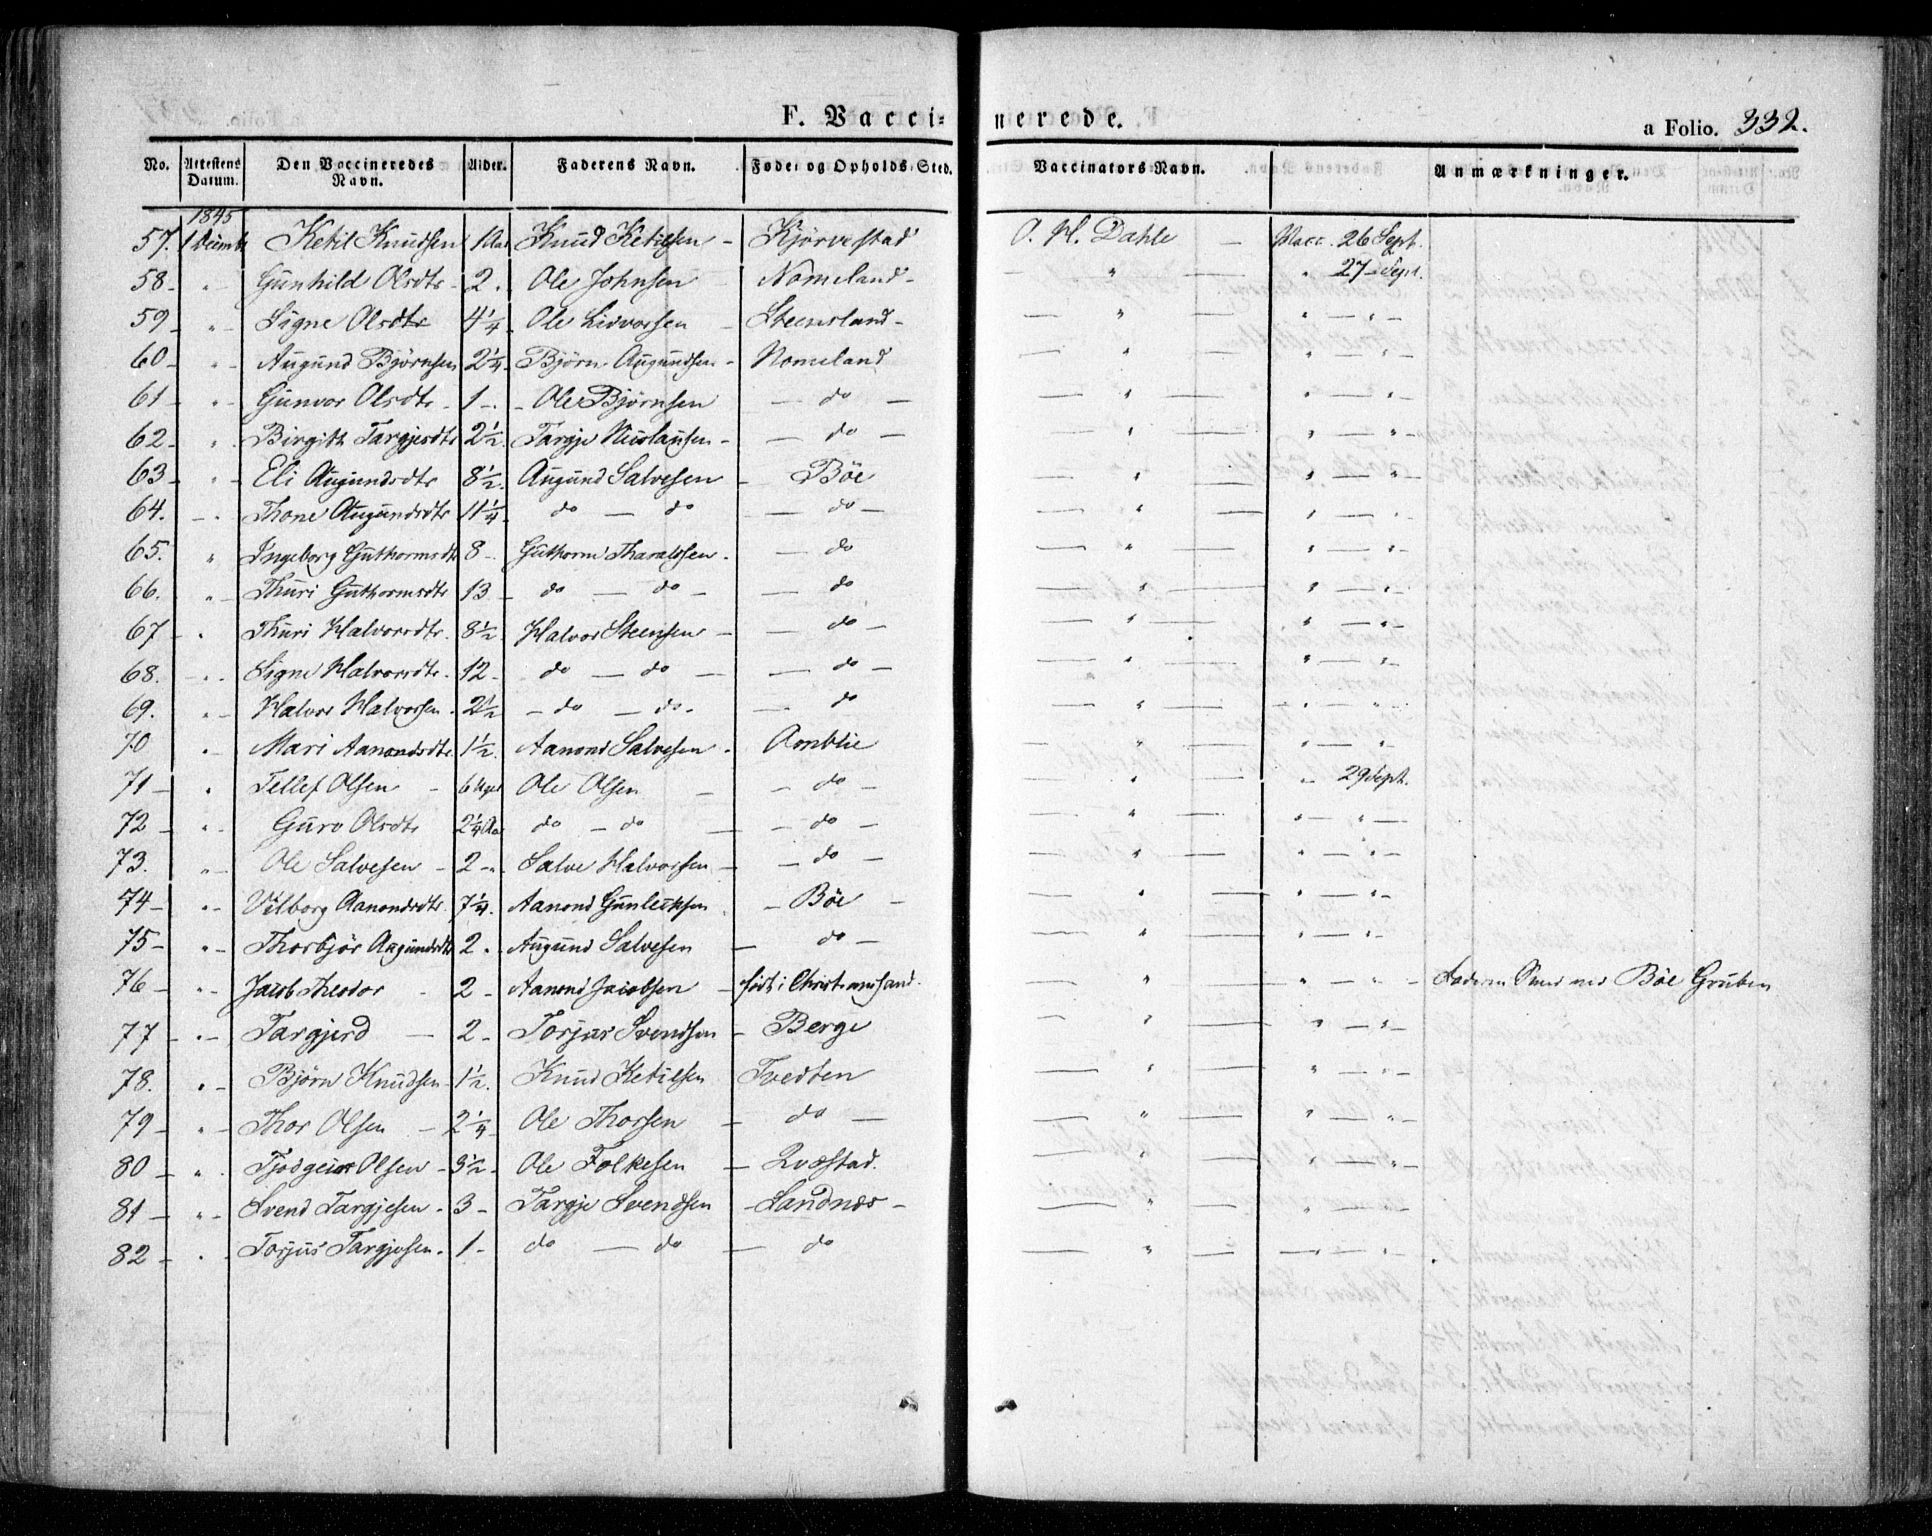 F. Vaccinerede.
a Folio. 332.
No. | Attestens Datum. | Den Vaccineredes Navn. | Alder. | Faderens Navn. | Føde- og Opholds-Sted. | Vaccinators Navn. | Anmærkninger.
1845
57. 1 Decemb Ketil Knudsen 1 Aar Knud Ketilsen - Kjørvestad O. H. Dahle - Vacc. 26 Sept.
58 - " - Gunhild Olsdtr - 2. Ole Johnsen Nomeland - - " - " 27 Sept.
59 - " - Signe Olsdtr 4 1/4 Ole Lidvorsen - Steensland - - " - " - "
60 - " - Augund Bjørnsen 2 1/4 Bjørn Augundsen - Nomeland - " - " - "
61 - " - Gunvor Olsdtr - 1 - - Ole Bjørnsen - do - - " - " - "
62 - " - Birgith Targjerdtr 2 1/2 Targje Niculausen - - do - - " - " - " -
63 - " - Eli Augundsdtr 8 1/2 Augund Salvesen - Bøe - " - " - " -
64. - " Thone Augundsdtr 11 1/4 do - do - do - - " - " - "
65. " Ingeborg Guthormsdtr 8 - Guthorm Tharaldsen - - do - " - " - "
66. " - Thuri Guthormsdtr 13 - do - do - - do - " - " - "
67 - " Thuri Halvorsdtr. 8 1/2 Halvor Steensen - - do - - " - " - " -
68. - " Signe Halvorsdtr. 12 - do - do - do - - " - " - " -
69. " - Halvor Halvorsen - 2 1/2 - do - do - - do - " - " - "
70 " - Mari Aanondsdtr. 1 1/2 Aanond Salvesen - Omblie - " - " - "
71 - " Tellef Olsen - 6 Uger Ole Olsen - - do - " - " 29 Sept.
72 - " Guro Olsdtr 2 1/4 Aar do - do - - do - - " - " - " -
73. " - Ole Salvesen - 2 - " Salve Halvorsen - - do - - " - " - " -
74 - " - Vilborg Aanondsdtr. 7 1/4 Aanond Gunleiksen - Bøe - - " - " - " -
75 - " - Thorbjør Augundsdtr 2 - Augund Salvesen - do - - " - " - " -
76 - " - Jacob Theodor - 2 - Aanond Jacobsen - født i Christiansand. - " - " - " - Faderen Smed ved Bøe Gruben
77 - " - Targjerd - 2 - Torjus Svendsen - Berge - " - " - " -
78. " - Bjørn Knudsen - 1 1/2. Knud Ketilsen Tvedten - " - " - "
79 - " - Thor Olsen - 2 1/4 - Ole Thorsen - do - - " - " - " -
80 - " - Tjodgeir Olsen - 3 1/2 - Ole Folkesen - Qvæstad. - " - " - " -
81 - " - Svend Targjesen - 3 - Targje Svendsen - Sandnes - - " - " - " -
82 - " - Torjus Targjesen. 1 - do - do - do - " - " - " -